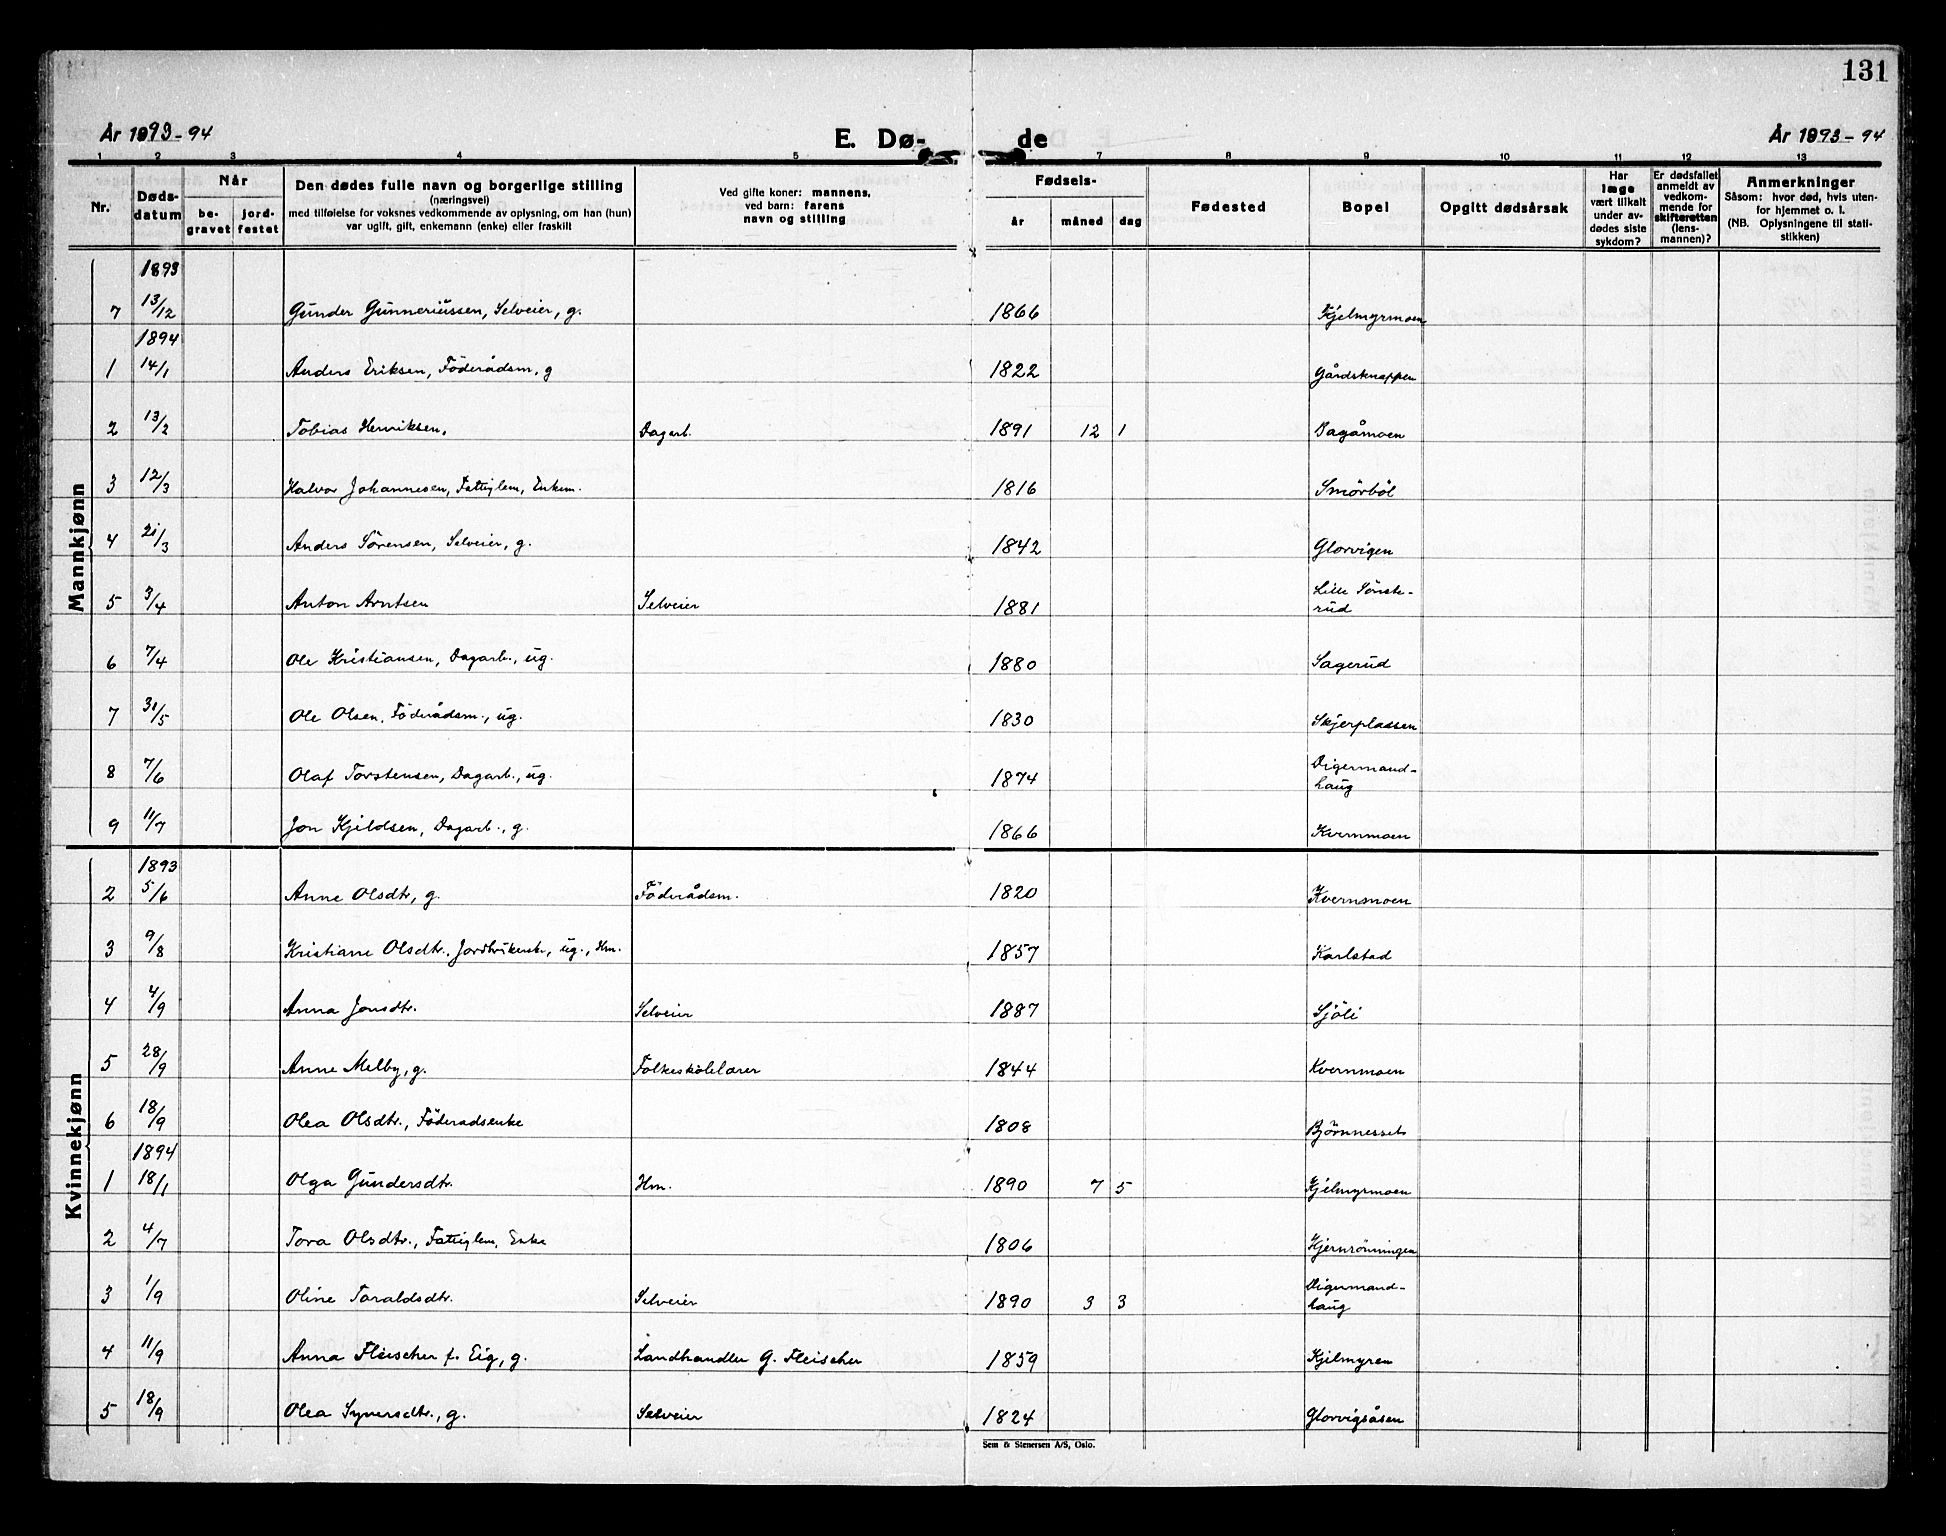 131
År 1893-94
E. Dø-
de
År 1893-94
1 2 3 4 5 7 8 9 10 11 12 13
Nr. Døds-datum Når be-gravet jord-festet Den dødes fulle navn og borgerlige stilling (næringsvei) med tilføielse for voksnes vedkommende av oplysning, om han (hun) var ugift, gift, enkemann (enke) eller fraskilt Ved gifte koner: mannens, ved barn: farens navn og stilling Fødsels- år måned dag Fødested Bopel Opgitt dødsårsak Har læge vært tilkalt under av-dødes siste sykdom? Er dødsfallet anmeldt av vedkom-mende for skifteretten (lens-mannen)? Anmerkninger Såsom: hvor død, hvis uten-for hjemmet o. l. (NB. Oplysningene til stati-stikken)
Mannkjønn
1893
7 13/12 Gunder Gunneriussen, Selveier, g. 1866 Kjelmyrmoen
1894
1 14/1 Anders Eriksen, Föderådsm, g 1822 Gårdsknappen
2 13/2 Tobias Henriksen, Dagarb. 1891 12 1 Bagåmoen
3 12/3 Halvor Johannesen, Fattiglem, Enkem. 1816 Smörböl
4 21/3 Anders Sörensen, Selveier, g. 1842 Glorvigen
5 3/4 Anton Arntsen Selveier 1881 Lille Sönste-
rud
6 7/4 Ole Kristiansen, Dagarb., ug. 1880 Sagerud
7 31/5 Ole Olsen, Föderådsm., ug. 1830 Skjerplassen
8 7/6 Olaf Torstensen, Dagarb., ug. 1874 Digermand-
haug
9 11/7 Jon Kjeldsen, Dagarb., g. 1866 Kvernmoen
Kvinnekjønn
1893
2 5/6 Anne Olsdtr, g. Föderådsm. 1820 Kvernsmoen
3 9/8 Kristiane Olsdtr., ug., Hm. 1857 Karlstad
4 4/9 Anna Jonsdtr. Selveier 1887 Sjöli
5 28/9 Anne Melby, g. Folkeskolelærer 1844 Kvernmoen
6 18/9 Olea Olsdtr., Föderadsenke 1808 Björnnesset
1894
1 18/1 Olga Gundersdtr. Hm. 1890 7 5 Kjelmyrmoen
2 4/7 Tora Olsdtr., Fattiglem, Enke 1806 Kjernrönningen
3 1/9 Oline Taraldsdtr. Selveier 1890 3 3 Digermand-
haug
4 11/9 Anna Fleischer f. Eig, g. Landhandler G. Fleischer 1859 Kjelmyren
5 18/9 Olea Syversdtr., g. Selveier 1824 Glorvigsåsen
Sem & Stenersen A/S, Oslo.